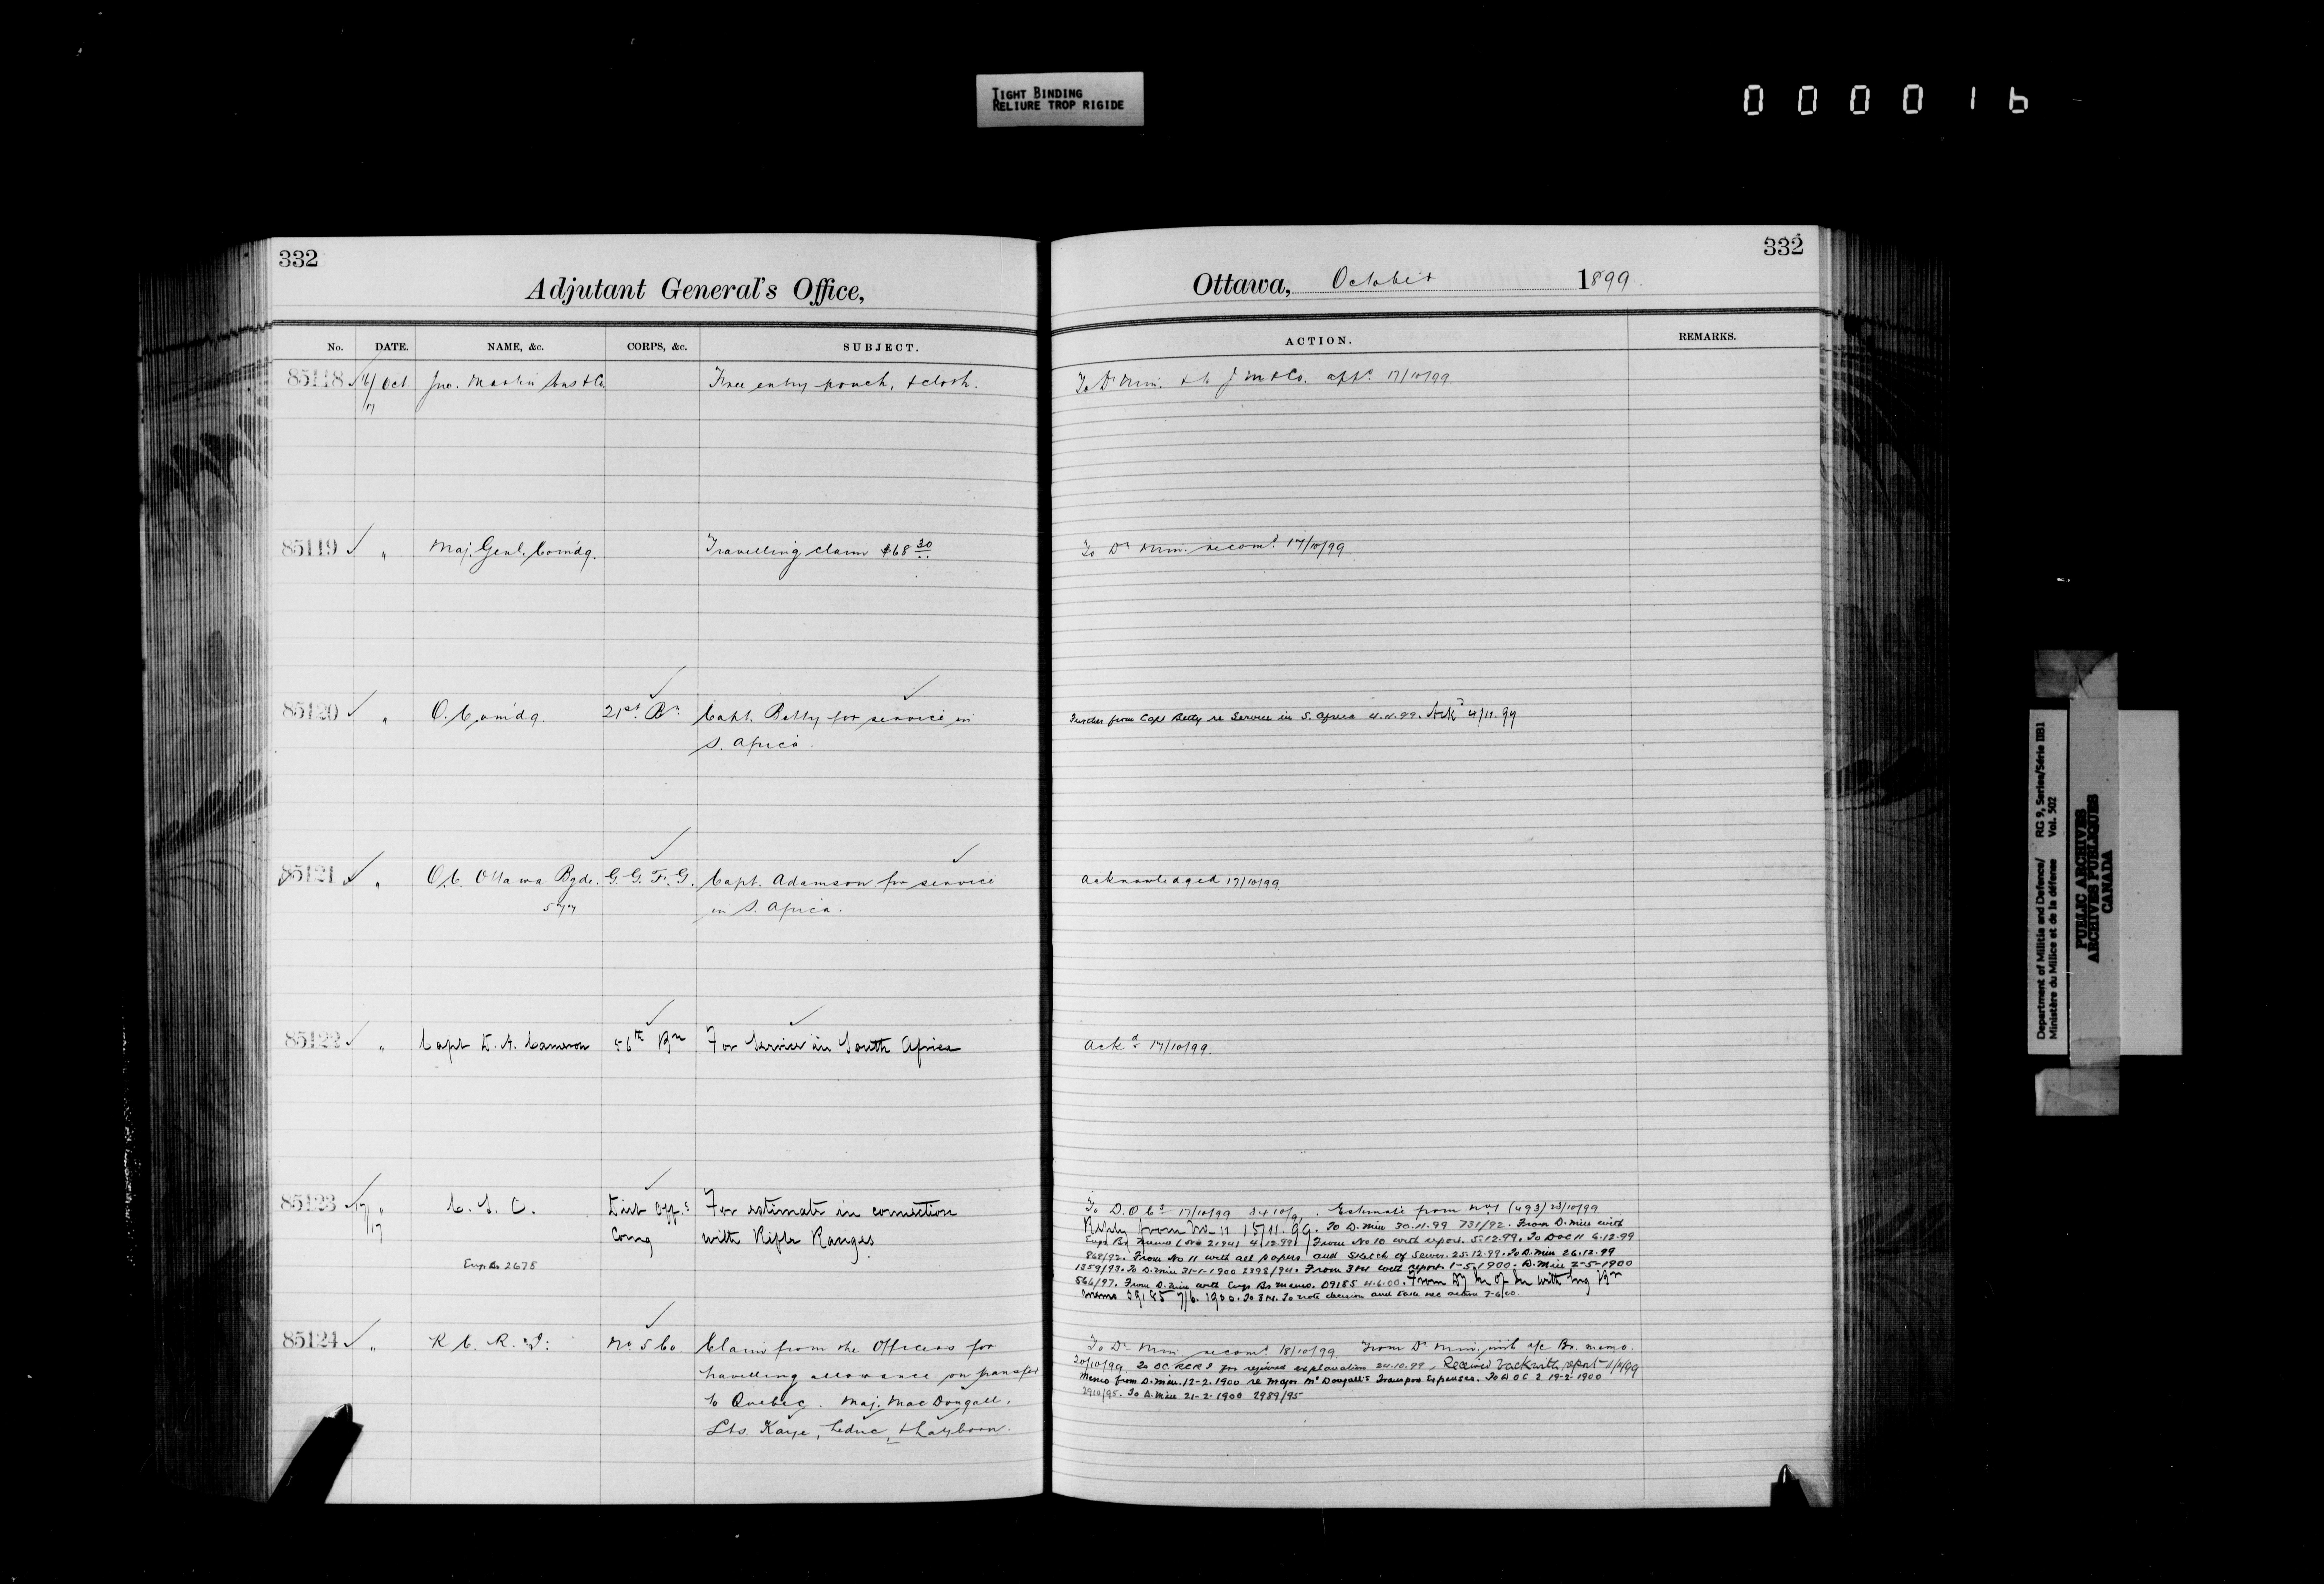 TIGHT BINDING
RELIURE TROP RIGIDE
000016
332
Adjutant General's Office,
No. DATE. NAME, &c. CORPS, &c. SUBJECT.
85118 16/ Oct Jno. Martin Sons & Co. Free entry pouch, & cloth.
17
85119 " Maj. Genl. Comdg. Travelling claim $68 30
85120 " O. Comdg. 21st Bn Capt. Betty for service in
S. Africa.
85121 " O.C. Ottawa Bgde. G.G.F.G. Capt. Adamson for service
in S. Africa.
85122 " Capt D. A. Cameron 56th Bn For Service in South Africa
85123 17/ " C. S. O. Dist Offrs For estimate in connection
17 Comg with Rifle Ranges
Engr Br 2678
85124 " R. C. R. I. No 5 Co Claim from the Officers for
travelling allowance on transfer
to Quebec. Maj. MacDougall,
Lts. Kaye, Leduc,
332
Ottawa, October 1899
ACTION. REMARKS.
To Dr Min. & to J M & Co. 17/10/99
To Dr Min. recomd 17/10/99
Further from Capt Betty re Service in S. Africa 4.11.99. Ackd 4/11.99
Acknowledged 17/10/99
Ackd 17/10/99.
To D.O.Cs 17/10/99 Estimate from No 1 (493) 23/10/99
Reply from No 11 15/11.99. To D. Min 30.11.99 731/92. From D. Min with
Engr Br memo 4.12.99. From No 10 with report. 5.12.99. To DOC 11 6.12.99
868/92. From No 11 with all papers and Sketch of Sewer. 25.12.99. To D. Min 26.12.99
1359/93. To D. Min 31-1-1900 2398/94. From 3 & 4 with report 1-5-1900. D. Min 2-5-1900
566/97. From D. Min with Engr Br memo. 09185 4.6.00. From Dy M of M with Eng Br
memo 09185 7/6. 1900. To note decision and take nec action 7-6-00.
To Dr Min recomd 18/10/99 From Dr Min. with a/c Br. memo.
20/10/99 To OC RCRI for required explanation 24.10.99. Received back with report
Memo from D. Min. 12-2-1900 re Major McDougall's Transport Expenses. To D O C 2 19-2-1900
2910/95. To D. Min 21-2-1900 2989/95
Department of Militia and Defence/ RG 9, Series/Série IIB1
Ministère du Milice et de la défense Vol. 502
PUBLIC ARCHIVES
ARCHIVES PUBLIQUES
CANADA